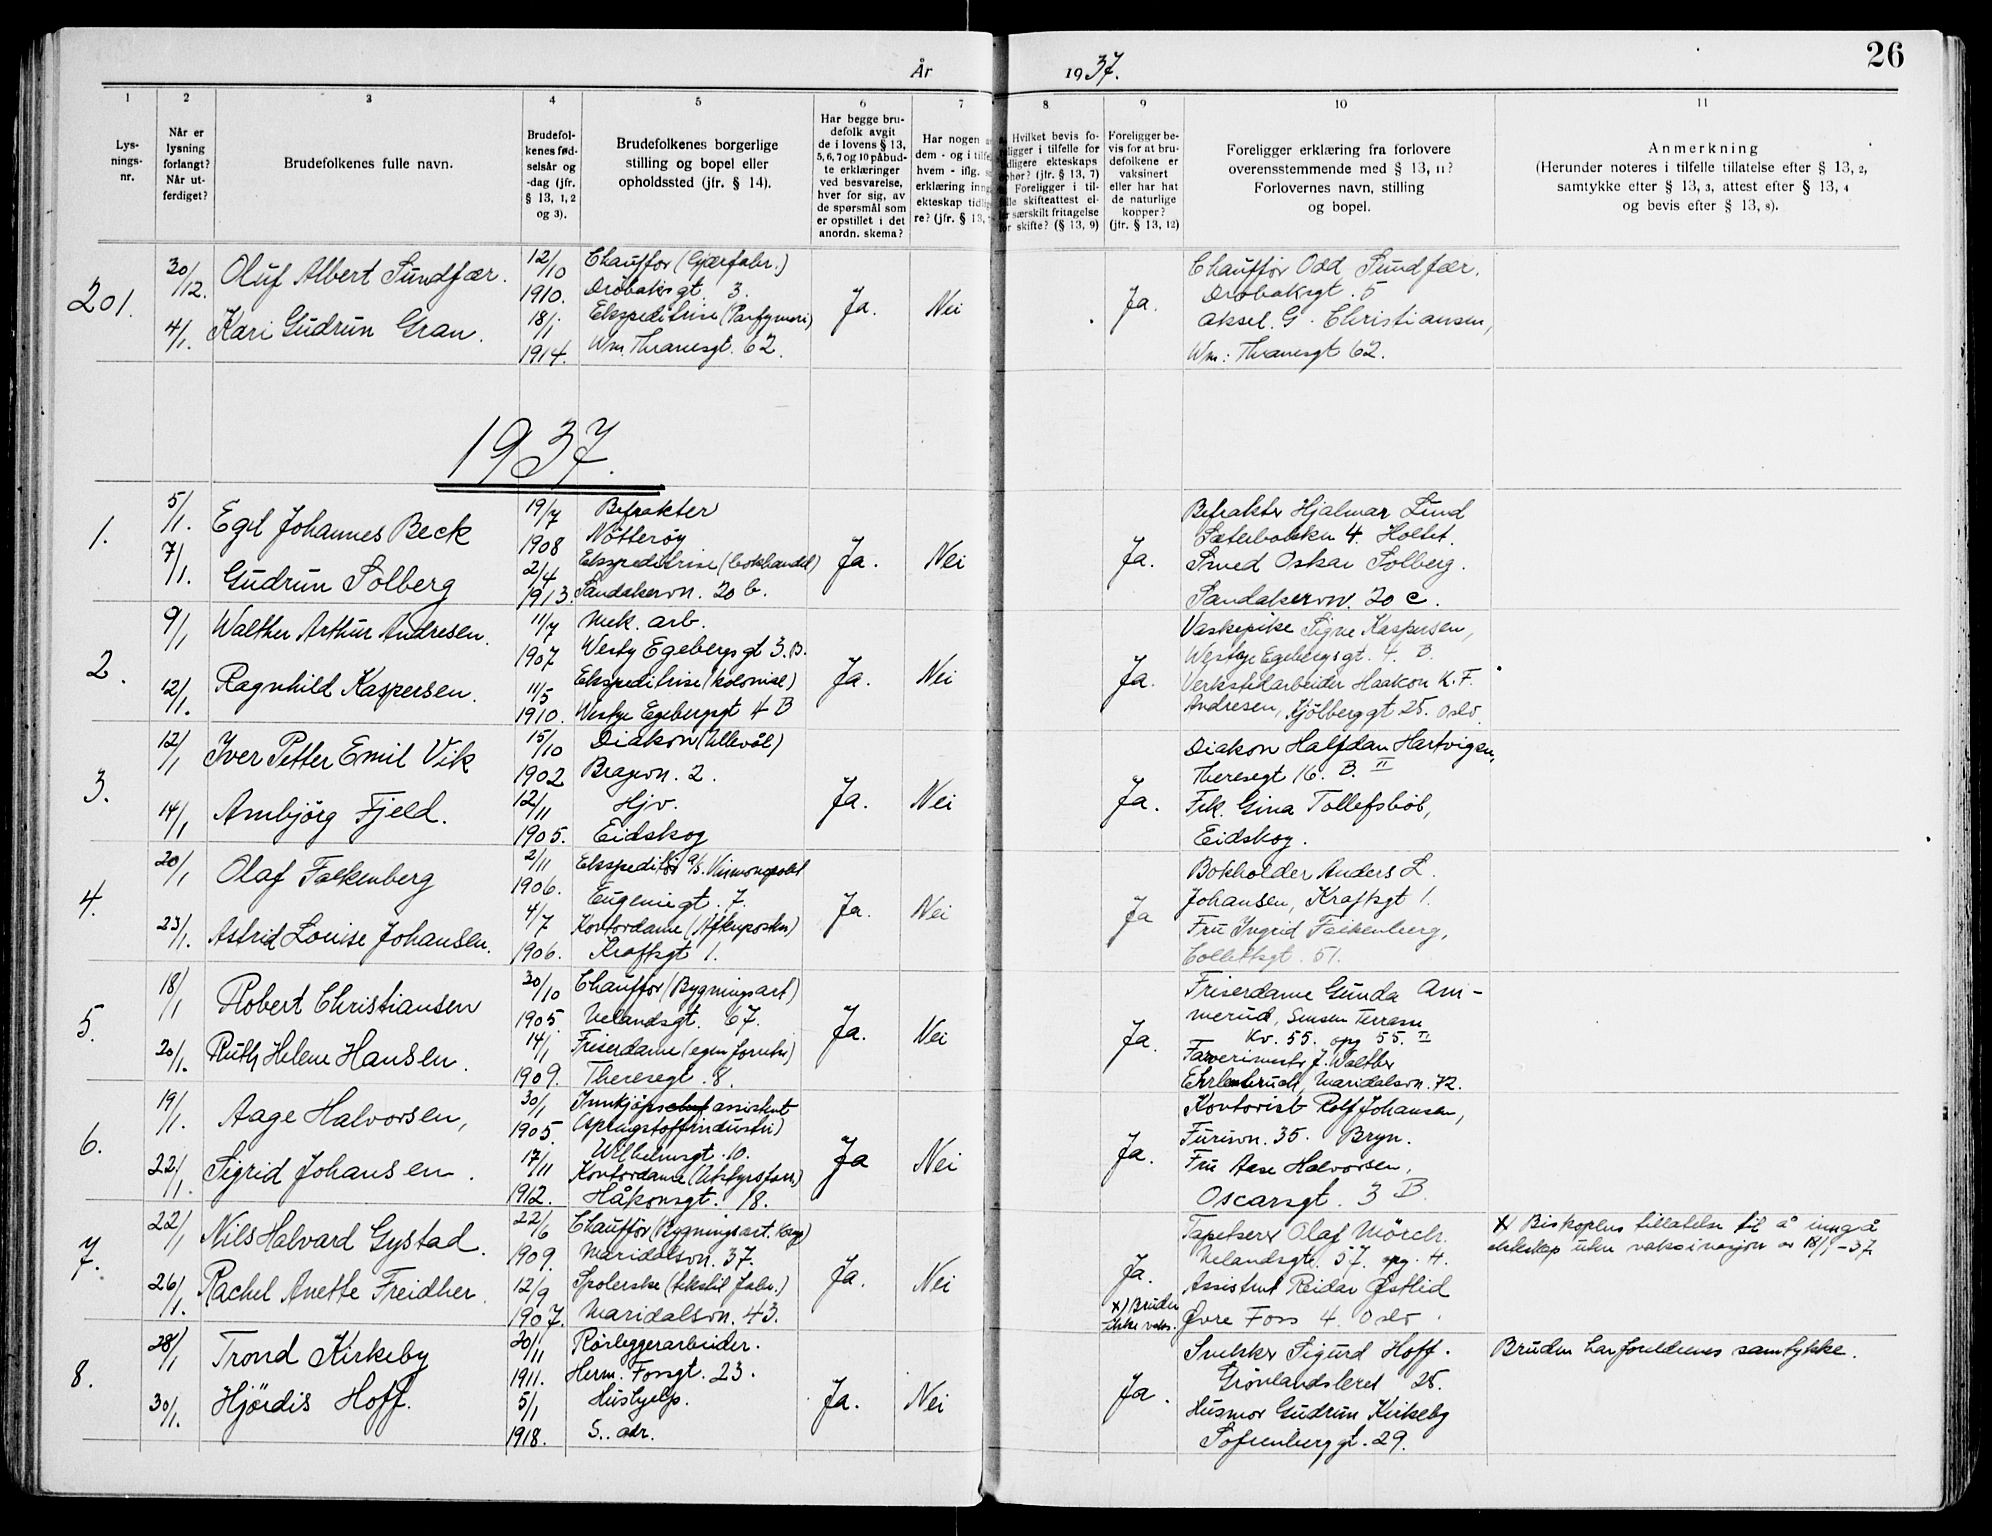 26
År 1937.
1 2 3 4 5 6 7 8 9 10 11
Lys-
nings-
nr.
Når er
lysning
forlangt?
Når ut-
ferdiget?
Brudefolkenes fulle navn.
Brudefol-
kenes fød-
selsår og
-dag (jfr.
§ 13, 1, 2
og 3).
Brudefolkenes borgerlige
stilling og bopel eller
opholdssted (jfr. § 14).
Har begge bru-
defolk avgit
de i lovens § 13,
5, 6, 7 og 10 påbud-
te erklæringer
ved besvarelse,
hver for sig, av
de spørsmål som
er opstillet i det
anordn. skema?
Har nogen a
dem - og i tilfe
hvem - iflg. s
erklæring inng
ekteskap tidlig
re? (jfr. § 13,
Hvilket bevis fo-
religger i tilfelle for
tidligere ekteskaps
ophør? (jfr. § 13, 7)
Foreligger i til-
felle skifteattest el-
ler særskilt fritagelse
for skifte? (§ 13, 9)
Foreligger be-
vis for at bru-
defolkene er
vaksinert
eller har hat
de naturlige
kopper?
(jfr. § 13, 12)
Foreligger erklæring fra forlovere
overensstemmende med § 13, 11?
Forlovernes navn, stilling
og bopel.
Anmerkning
(Herunder noteres i tilfelle tillatelse efter § 13, 2,
samtykke efter § 13, 3, attest efter § 13, 4
og bevis efter § 13, 8).
201.
30/12.
4/1.
Oluf Albert Sundfær.
Kari Gudrun Gran.
12/10
1910.
18/1
1914.
Chauffør (Gjærfabr.)
Drøbaksgt. 3.
Ekspeditrise (Parfymeri)
Wm. Thranesgt. 62.
Ja.
Nei
Ja.
Chauffør Odd Sundfær.
Drøbaksgt. 5
Aksel G. Christiansen,
Wm: Thranesgt 62.
1937.
1.
5/1.
7/1.
Egil Johannes Beck
Gudrun Solberg
19/7
1908
2/4
1913.
Befrakter
Nøtterøy
Ekspeditrise (bokhandel)
Sandakervn. 20 b.
Ja.
Nei
Ja.
Befrakter Hjalmar Lund
Sæterbakken 4. Holtet.
Smed Oskar Solberg.
Sandakervn. 20 c.
2.
9/1
12/1.
Walther Arthur Andresen.
Ragnhild Kaspersen.
11/7
1907
11/5
1910.
Mek. arb.
Westy Egebergsgt 3.B.
Ekspeditrise (kolonial)
Westye Egebergsgt 4 B
Ja.
Nei
Ja.
Vaskepike Signe Kaspersen,
Westye Egebergsgt. 4. B.
Verkstedarbeider Haakon K. F.
Andresen, Kjølberggt 25. Oslo.
3.
12/1
14/1
Iver Petter Emil Vik
Arnbjörg Fjeld.
15/10
1902
12/11
1905.
Diakon (Ullevål)
Bragevn. 2.
Hjv.
Eidskog
Ja.
Nei
Ja.
Diakon Halfdan Hartvigsen,
Theresegt 16. B. II
Frk. Gina Tollefsböl,
Eidskog.
4.
20/1
23/1.
Olaf Falkenberg
Astrid Louise Johansen.
2/11
1906.
4/7
1906.
Ekspeditör A/S. Vinmonopolet
Eugeniegt. 7.
Kontordame (Aftenposten)
Kraftsgt 1.
Ja.
Nei
Ja
Bokholder Anders L.
Johansen, Kraftsgt 1.
Fru Ingrid Falkenberg,
Collettsgt. 51.
5.
18/1
20/1.
Robert Christiansen
Ruth Helene Hansen.
30/10
1905.
14/1
1909.
Chauffør (Bygningsart)
Uelandsgt. 67.
Friserdame (egen forretn)
Theresegt. 8.
Ja.
Nei
Ja.
Friserdame Gunda Am-
merud, Sinsen Terrasse
Kv. 55. opg 55. II
Farverimester J. Walther
Ehrlenbruch, Maridalsvn. 72.
6.
19/1.
22/1.
Aage Halvorsen,
Sigrid Johansen.
30/1
1905.
17/11
1912.
Innkjøpschef assistent
(Sprengstoffindustri)
Wilhelmsgt. 10.
Kontordame (Utstyrsforr.)
Håkonsgt. 18.
Ja
Nei
Ja.
Kontorist Rolf Johansen,
Furuvn. 35. Bryn.
Fru Aase Halvorsen,
Oscarsgt. 3 B.
7.
22/1
26/1.
Nils Halvard Gystad.
Rachel Anette Freidher.
22/6
1909.
12/9
1907.
Chauffør (Bygningsart. forr)
Maridalsvn. 37.
Spolerske (tekstil fabr.)
Maridalsvn. 43.
Ja.
Nei
Ja.
x) Bruden
ikke vaks.
Tapetserer Olaf Mörch.
Uelandsgt. 57. opg. 4.
Assistent Reidar Østlid
Øvre Foss 4. Oslo.
x) Biskopens tillatelse til å inngå
ekteskap uten vaksinasjon av 18/1-37.
8.
28/1
30/1.
Trond Kirkeby
Hjördis Hoff.
20/11
1911.
5/1
1918.
Rørleggerarbeider.
Herm. Fossgt. 23.
Hushjelp.
S. adr.
Ja.
Nei
Ja.
Snekker Sigurd Hoff.
Grönlandsleret 25.
Husmor Gudrun Kirkeby
Sofienberggt. 29.
Bruden har foreldrenes samtykke.